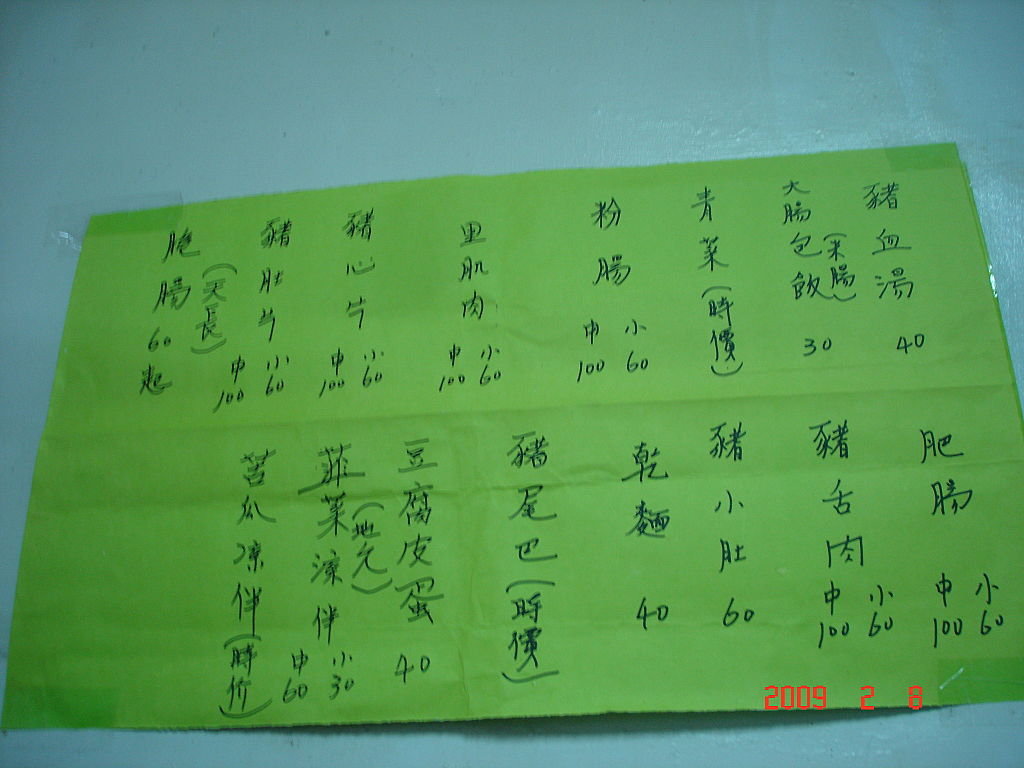 豬血湯 40
大腸包飯(米腸) 30
青菜(時價)
粉腸 小60 中100
里肌肉 小60 中100
豬心片 小60 中100
豬肚片 小60 中100
脆腸(天長) 60起
肥腸 小60 中100
豬舌肉 小60 中100
豬小肚 60
乾麵 40
豬尾巴(時價)
豆腐皮蛋 40
韮菜涼伴(地允) 小30 中60
苦瓜凉伴(時价)
2009 2 8